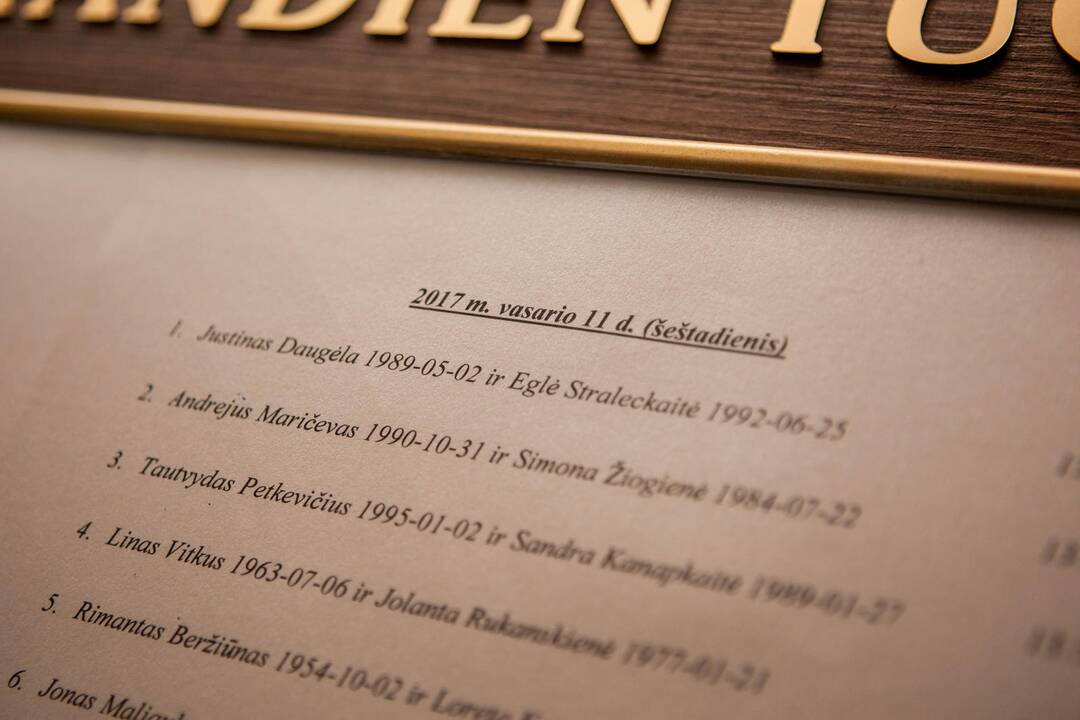 ANDIEN TUO
2017 m. vasario 11 d. (šeštadienis)
1. Justinas Daugėla 1989-05-02 ir Eglė Straleckaitė 1992-06-25
2. Andrejus Maričevas 1990-10-31 ir Simona Žiogienė 1984-07-22
3. Tautvydas Petkevičius 1995-01-02 ir Sandra Kanapkaitė 1989-01-27
4. Linas Vitkus 1963-07-06 ir Jolanta Rukanskienė 1977-01-21
5. Rimantas Beržiūnas 1954-10-02 ir
6. Jonas